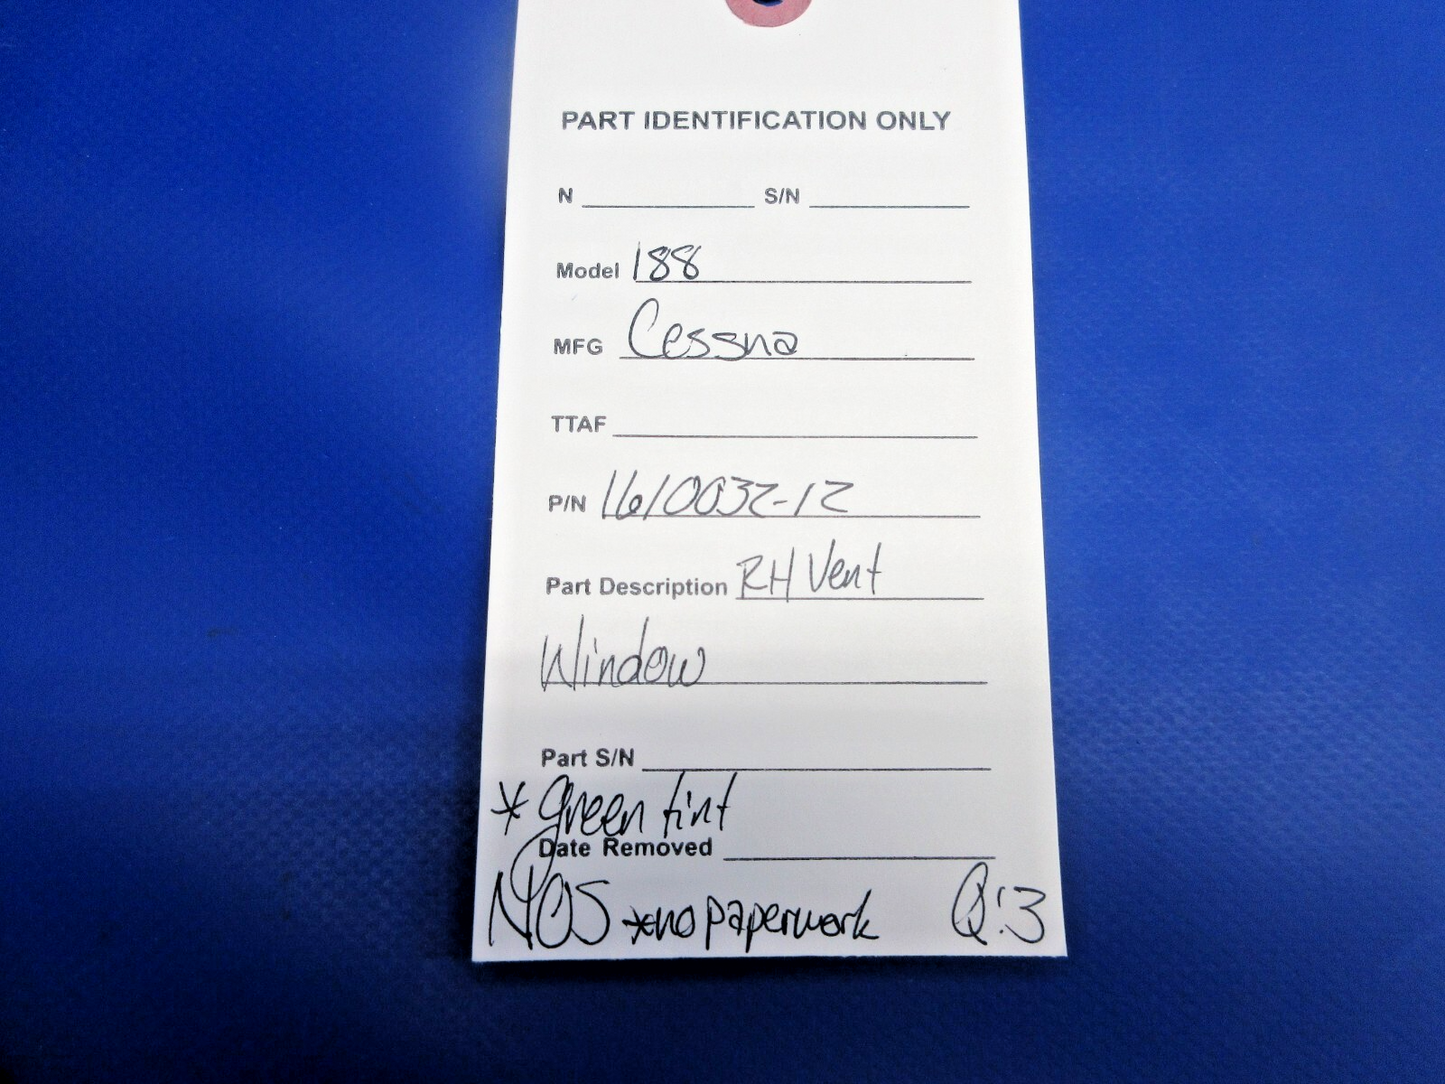 PART IDENTIFICATION ONLY
N S/N
Model 188
MFG Cessna
TTAF
P/N 1610032-12
Part Description RH Vent
Window
Part S/N
* green tint
Date Removed
NOS *no paperwork Q:3